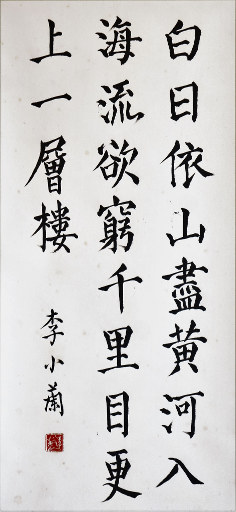 白日依山盡黄河入
海流欲窮千里目更
上一層樓
李小蘭